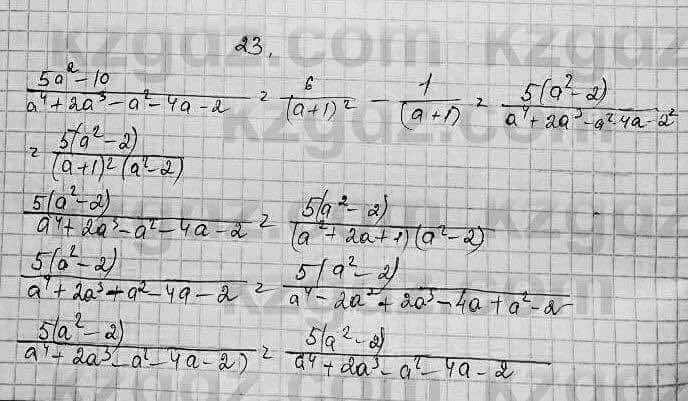 23.
(5a²-10)/(a⁴+2a³-a²-4a-2) = 6/(a+1)² - 1/(a+1) = 5(a²-2)/(a⁴+2a³-a²-4a-2) =
= 5(a²-2)/((a+1)²(a²-2))
5(a²-2)/(a⁴+2a³-a²-4a-2) = 5(a²-2)/((a²+2a+1)(a²-2))
5(a²-2)/(a⁴+2a³+a²-4a-2) = 5(a²-2)/(a⁴-2a²+2a³-4a+a²-2)
5(a²-2)/(a⁴+2a³-a²-4a-2) = 5(a²-2)/(a⁴+2a³-a²-4a-2)